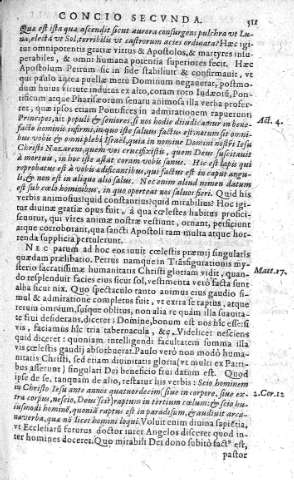 CONCIO SECVNDA. 511
Quæ est ista quæ ascendit sicut aurora consurgens pulchra vt Lu-
na, electa vt Sol, terribilis vt castrorum acies ordinata? Hæc igi
tur omnipotentis gratiæ virtus & Apostolos, & martyres insu-
perabiles, & omni humana potentia superiores fecit. Hæc
Apostolum Petrum sic in fide stabiliuit & confirmauit, vt
qui paulo antea puellæ metu Dominum negauerat, postmo-
dum huius virtute indutus ex alto, coram toto Iudæorũ, Pon-
tificum atque Pharisæorum senatu animosa illa verba profer-
ret, quæ ipsos etiam Pontifices in admirationem rapuerunt:
Principes, ait populi & seniores, si nos hodie diiudicamur in bene-
facto hominis infirmi, in quo iste saluus factus est: notum sit omni-
bus vobis & omni plebi Israel, quia in nomine Domini nostri Iesu
Christi Nazareni, quem vos crucifixistis, quem Deus suscitauit
à mortuis, in hoc iste astat coram vobis sanus. Hic est lapis qui
reprobatus est à vobis ædificantibus, qui factus est in caput angu-
li, & non est in aliquo alio salus. Nec enim aliud nomen datum
est sub cœlo hominibus, in quo oporteat nos saluos fieri. Quid his
verbis animosius? quid constantius? quid mirabilius? Hoc igi-
tur diuinæ gratiæ opus fuit, à qua cœlestes habitus profici-
scuntur, qui vires animæ nostræ vestiunt, ornant, perficiunt
atque corroborant, qua sancti Apostoli tam multa atque hor-
renda supplicia pertulerunt.
NEC parum ad hoc eos iuuit cœlestis præmij singularis
quædam prælibatio. Petrus nanque in Transfigurationis my-
sterio sacratissimæ humanitatis Christi gloriam vidit, quan-
do resplenduit facies eius sicut sol, vestimenta verò facta sunt
alba sicut nix. Quo spectaculo tanto animus eius gaudio si-
mul & admiratione completus fuit, vt extra se raptus, atque
rerum omnium, suique oblitus, non alia re quàm illa suauita-
te frui desiderans, diceret: Domine, bonum est nos hîc esse: si
vis, faciamus hîc tria tabernacula, &c. Videlicet nesciens
quid diceret: quoniam intelligendi facultatem summa illa
vis cœlestis gaudij absorbuerat. Paulo verò non modò huma-
nitatis Christi, sed etiam diuinitatis gloria (vt multi ex Patri-
bus asserunt) singulari Dei beneficio frui datum est. Quod
ipse de se, tanquam de alio, testatur his verbis: Scio hominem
in Christo Iesu ante annos quatuordecim, siue in corpore, siue ex-
tra corpus, nescio, Deus scit: raptum in tertium cœlum: & scio hu-
iusmodi hominẽ, quoniã raptus est in paradisum, & audiuit arca-
na verba, quæ nõ licet homini loqui. Voluit enim diuina sapientia,
vt Ecclesiæ futurus doctor inter Angelos disceret quod in-
ter homines doceret. Quo mirabili Dei dono subitò factᵘ est,
pastor
Act. 4.
Matt. 17.
2. Cor. 12